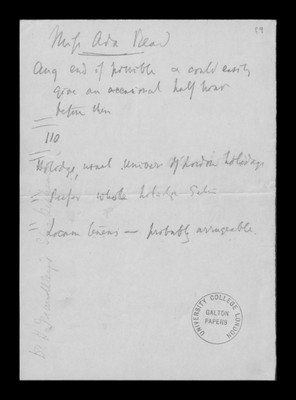 59
Miss Ada Dead
Aug end if possible or could easily
give an occasional half hour
before then
110
Holidays, usual University of London holidays
Prefer whole
Locum tenens — probably arrangeable.
UNIVERSITY COLLEGE LONDON
GALTON
PAPERS